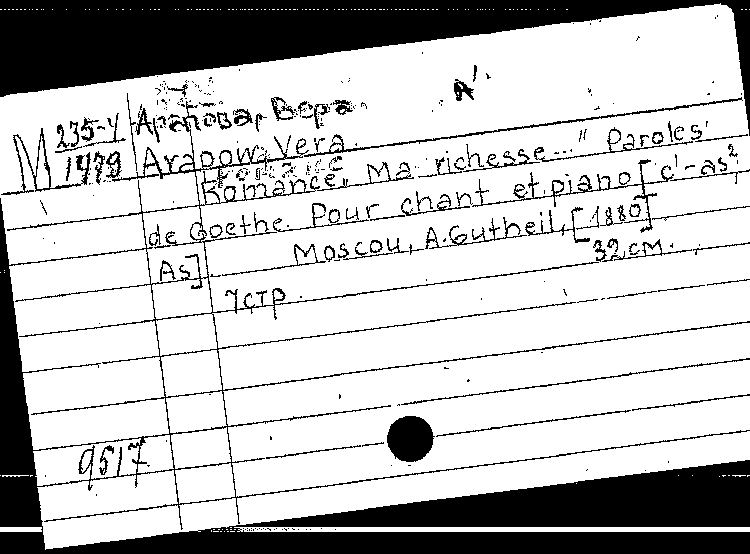 A'
M 235-4/1479 Арапова, Вера.
Arapow, Vera.
Romance. "Ma richesse..." Paroles
de Goethe. Pour chant et piano [c'-as²,
As]. Moscou, A. Gutheil, [1880]
7 стр. 32 см.
9517